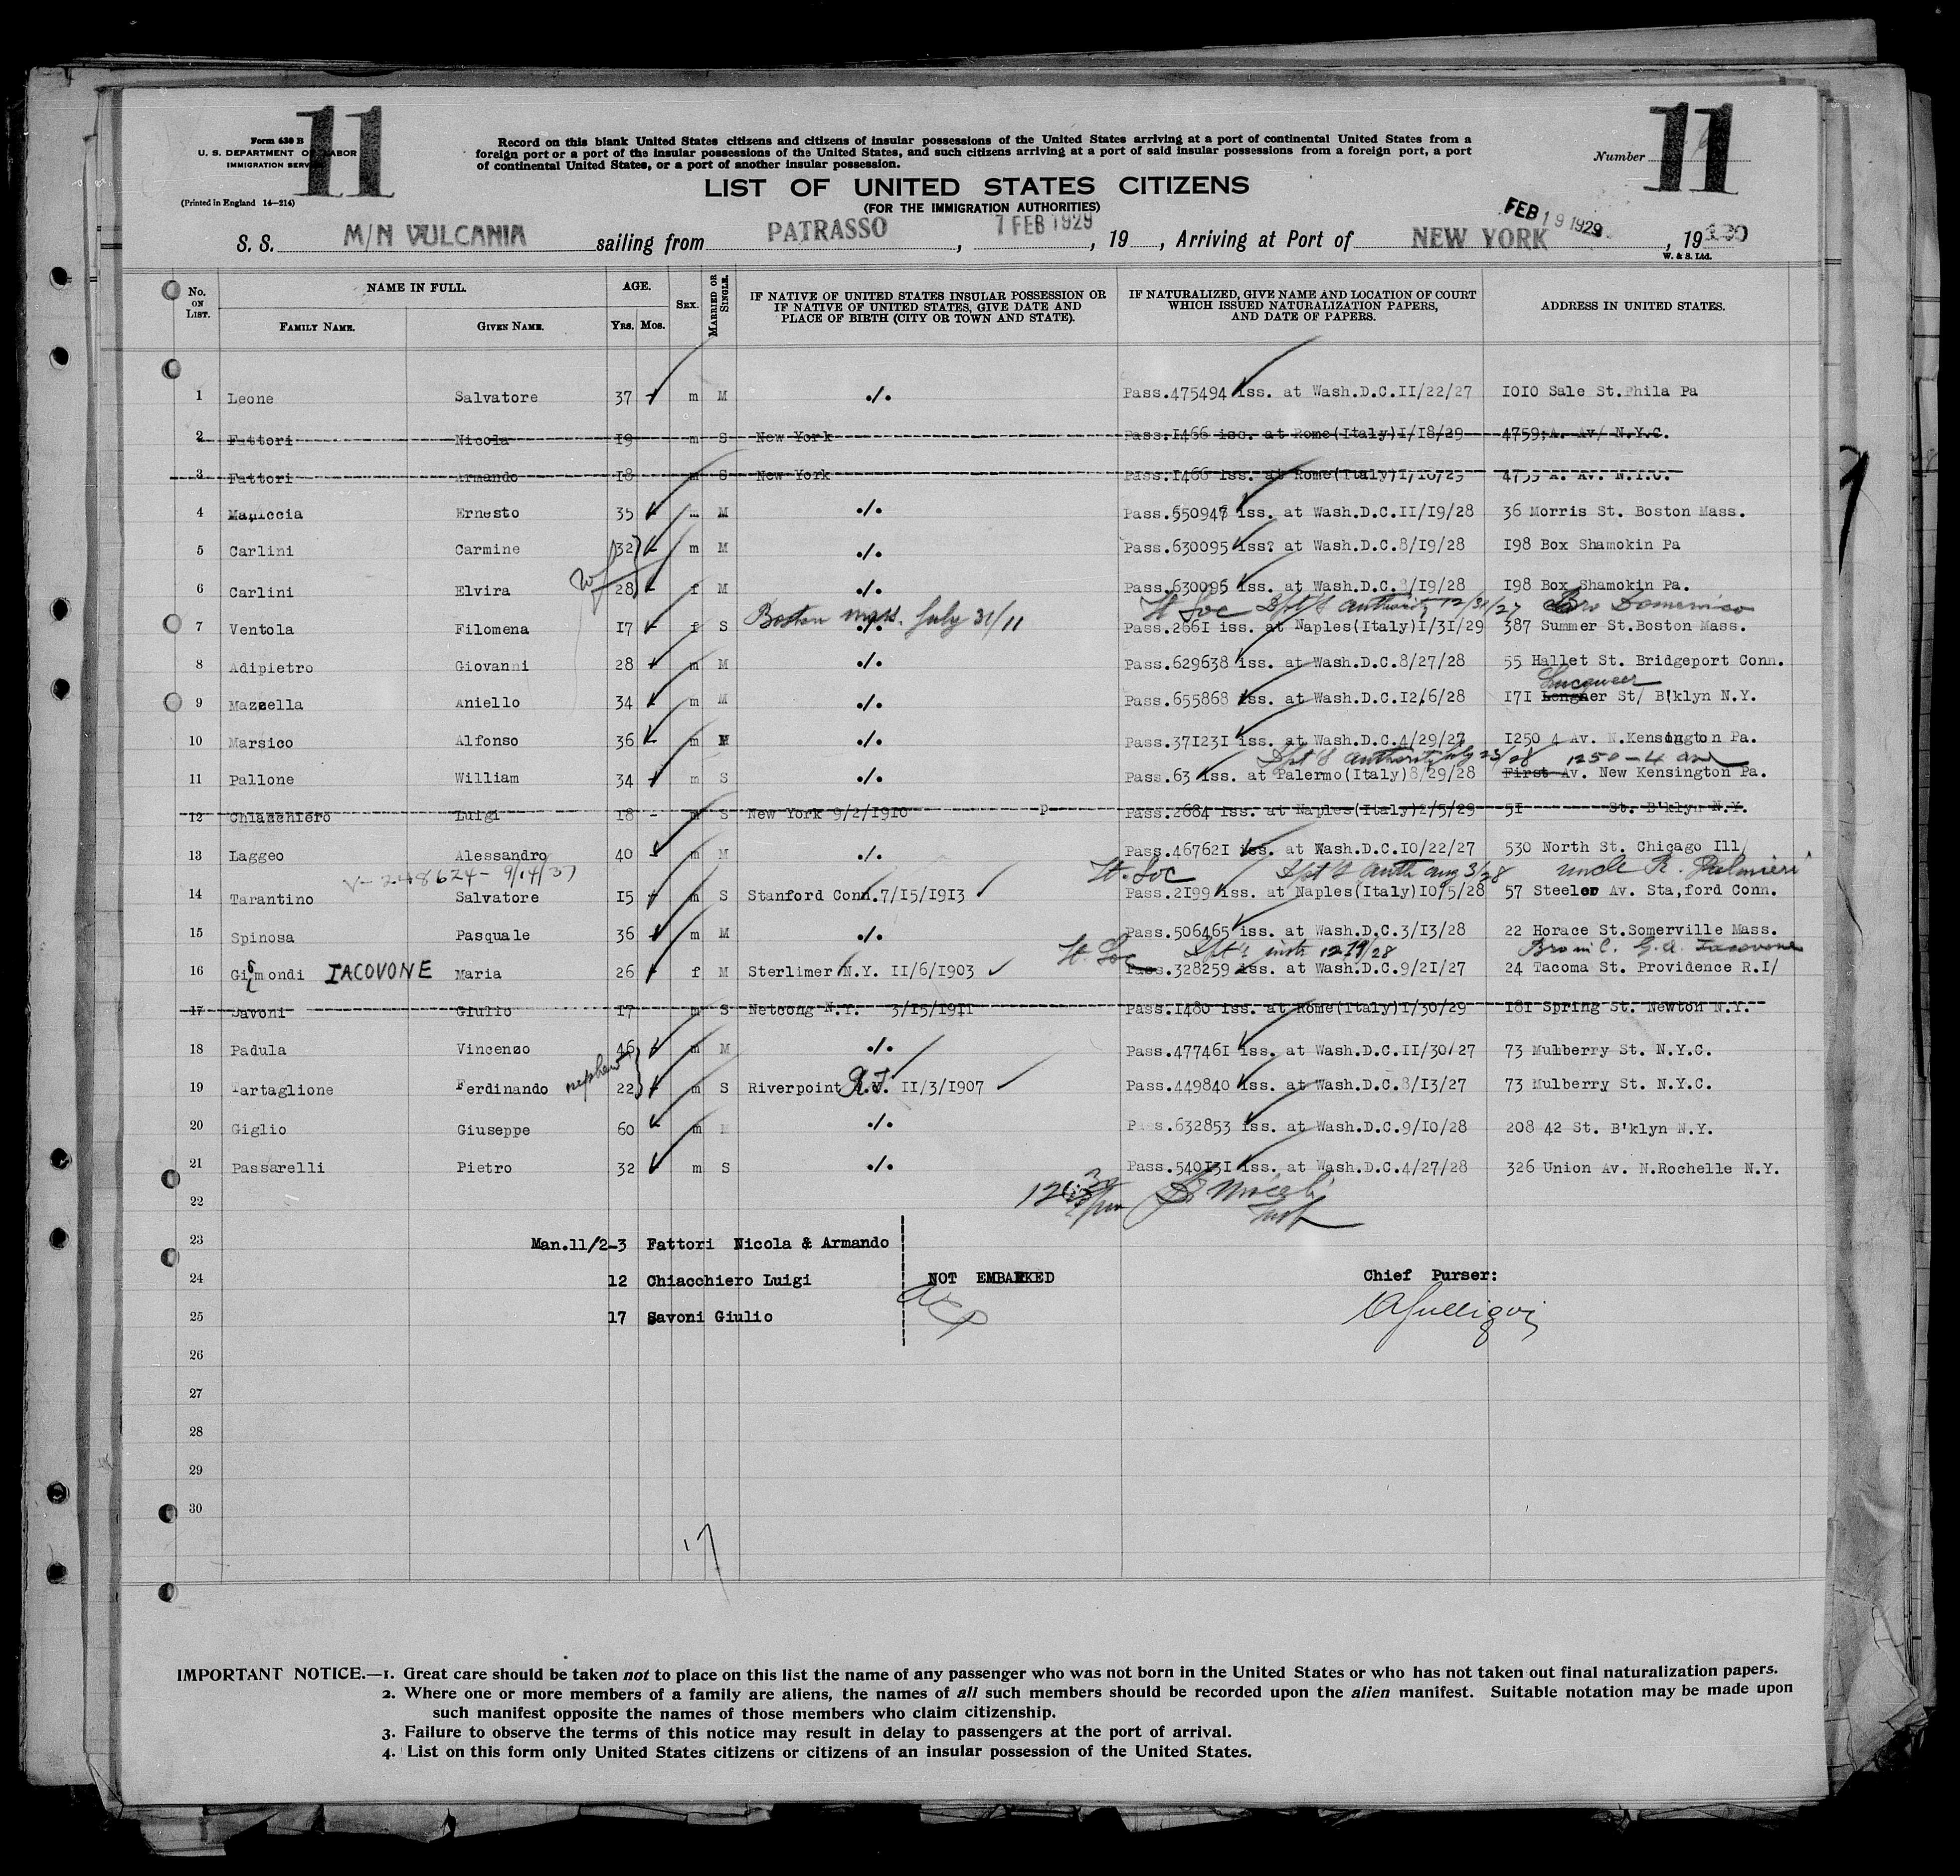 11
11
Form 630 B
U. S. DEPARTMENT OF LABOR
IMMIGRATION SERVICE
(Printed in England 14—214)
Record on this blank United States citizens and citizens of insular possessions of the United States arriving at a port of continental United States from a
foreign port or a port of the insular possessions of the United States, and such citizens arriving at a port of said insular possessions from a foreign port, a port
of continental United States, or a port of another insular possession.
Number
LIST OF UNITED STATES CITIZENS
(FOR THE IMMIGRATION AUTHORITIES)
S. S. M/N VULCANIA sailing from PATRASSO, 7 FEB 1929, 19, Arriving at Port of NEW YORK FEB 19 1929, 19
W. & S. Ltd.
No. ON LIST.
NAME IN FULL.
FAMILY NAME.
GIVEN NAME.
AGE.
Yrs. Mos.
SEX.
MARRIED OR SINGLE.
IF NATIVE OF UNITED STATES INSULAR POSSESSION OR
IF NATIVE OF UNITED STATES, GIVE DATE AND
PLACE OF BIRTH (CITY OR TOWN AND STATE).
IF NATURALIZED, GIVE NAME AND LOCATION OF COURT
WHICH ISSUED NATURALIZATION PAPERS,
AND DATE OF PAPERS.
ADDRESS IN UNITED STATES.
1 Leone Salvatore 37 - m M ./. Pass.475494 iss. at Wash.D.C.II/22/27 IOIO Sale St.Phila Pa
2 Fattori Nicola I9 m S New York Pass.I466 iss. at Rome(Italy)I/I8/29 4759;A. Av/ N.Y.C.
3 Fattori Armando I8 m S New York Pass.I466 iss. at Rome(Italy)I/I8/29 4759 A. Av. N.Y.C.
4 Maniccia Ernesto 35 m M ./. Pass.550947 iss. at Wash.D.C.II/I9/28 36 Morris St. Boston Mass.
5 Carlini Carmine 32 m M ./. Pass.630095 iss? at Wash.D.C.8/I9/28 I98 Box Shamokin Pa
wf
6 Carlini Elvira 28 f M ./. Pass.630095 iss. at Wash.D.C.8/I9/28 I98 Box Shamokin Pa.
Boston Mass. July 31/11 Dpt's authority 12/31/27 Bro Domenico
7 Ventola Filomena I7 f S ./. Pass.266I iss. at Naples(Italy)I/3I/29 387 Summer St.Boston Mass.
8 Adipietro Giovanni 28 m M ./. Pass.629638 iss. at Wash.D.C.8/27/28 55 Hallet St. Bridgeport Conn.
Lucqueer
9 Mazzella Aniello 34 m M ./. Pass.655868 iss. at Wash.D.C.I2/6/28 I7I Longner St/ B'klyn N.Y.
10 Marsico Alfonso 36 - m M ./. Pass.37I23I iss. at Wash.D.C.4/29/27 I250 4 Av. N.Kensington Pa.
Dpt's authority July 23/28 1250 - 4 ave
11 Pallone William 34 m S ./. Pass.63 iss. at Palermo(Italy)8/29/28 First Av. New Kensington Pa.
12 Chiacchiero Luigi I8 - m S New York 9/2/I9I0 p Pass.2684 iss. at Naples(Italy)2/5/29 5I St. B'klyn N.Y.
13 Laggeo Alessandro 40 - m M ./. Pass.46762I iss. at Wash.D.C.IO/22/27 530 North St. Chicago Ill/
V- 248624 - 9/14/37 Dpt's auth aug 3/28 uncle R. Palmieri
14 Tarantino Salvatore I5 m S Stanford Conn.7/I5/I9I3 Pass.2I99 iss. at Naples(Italy)IO/5/28 57 Steeler Av. Sta,ford Conn.
15 Spinosa Pasquale 36 m M ./. Pass.506465 iss. at Wash.D.C.3/I3/28 22 Horace St.Somerville Mass.
Bro in l. G. A. Iacovone
16 Gismondi IACOVONE Maria 26 f M Sterlimer N.Y. II/6/I903 Pass.328259 iss. at Wash.D.C.9/2I/27 24 Tacoma St. Providence R.I/
17 Savoni Giulio I7 m S Netcong N.Y. 3/I5/I9II Pass.I480 iss. at Rome(Italy)I/30/29 I8I Spring St. Newton N.Y.
18 Padula Vincenzo 46 - m M ./. Pass.47746I iss. at Wash.D.C.II/30/27 73 Mulberry St. N.Y.C.
nephew
19 Tartaglione Ferdinando 22 m S Riverpoint R.I. II/3/I907 Pass.449840 iss. at Wash.D.C.8/I3/27 73 Mulberry St. N.Y.C.
20 Giglio Giuseppe 60 m M ./. Pass.632853 iss. at Wash.D.C.9/I0/28 208 42 St. B'klyn N.Y.
21 Passarelli Pietro 32 m S ./. Pass.540I3I iss. at Wash.D.C.4/27/28 326 Union Av. N.Rochelle N.Y.
22
23 Man.11/2-3 Fattori Nicola & Armando
24 12 Chiacchiero Luigi NOT EMBARKED Chief Purser:
25 17 Savoni Giulio
26
27
28
29
30
17
IMPORTANT NOTICE.—1. Great care should be taken not to place on this list the name of any passenger who was not born in the United States or who has not taken out final naturalization papers.
2. Where one or more members of a family are aliens, the names of all such members should be recorded upon the alien manifest. Suitable notation may be made upon
such manifest opposite the names of those members who claim citizenship.
3. Failure to observe the terms of this notice may result in delay to passengers at the port of arrival.
4. List on this form only United States citizens or citizens of an insular possession of the United States.